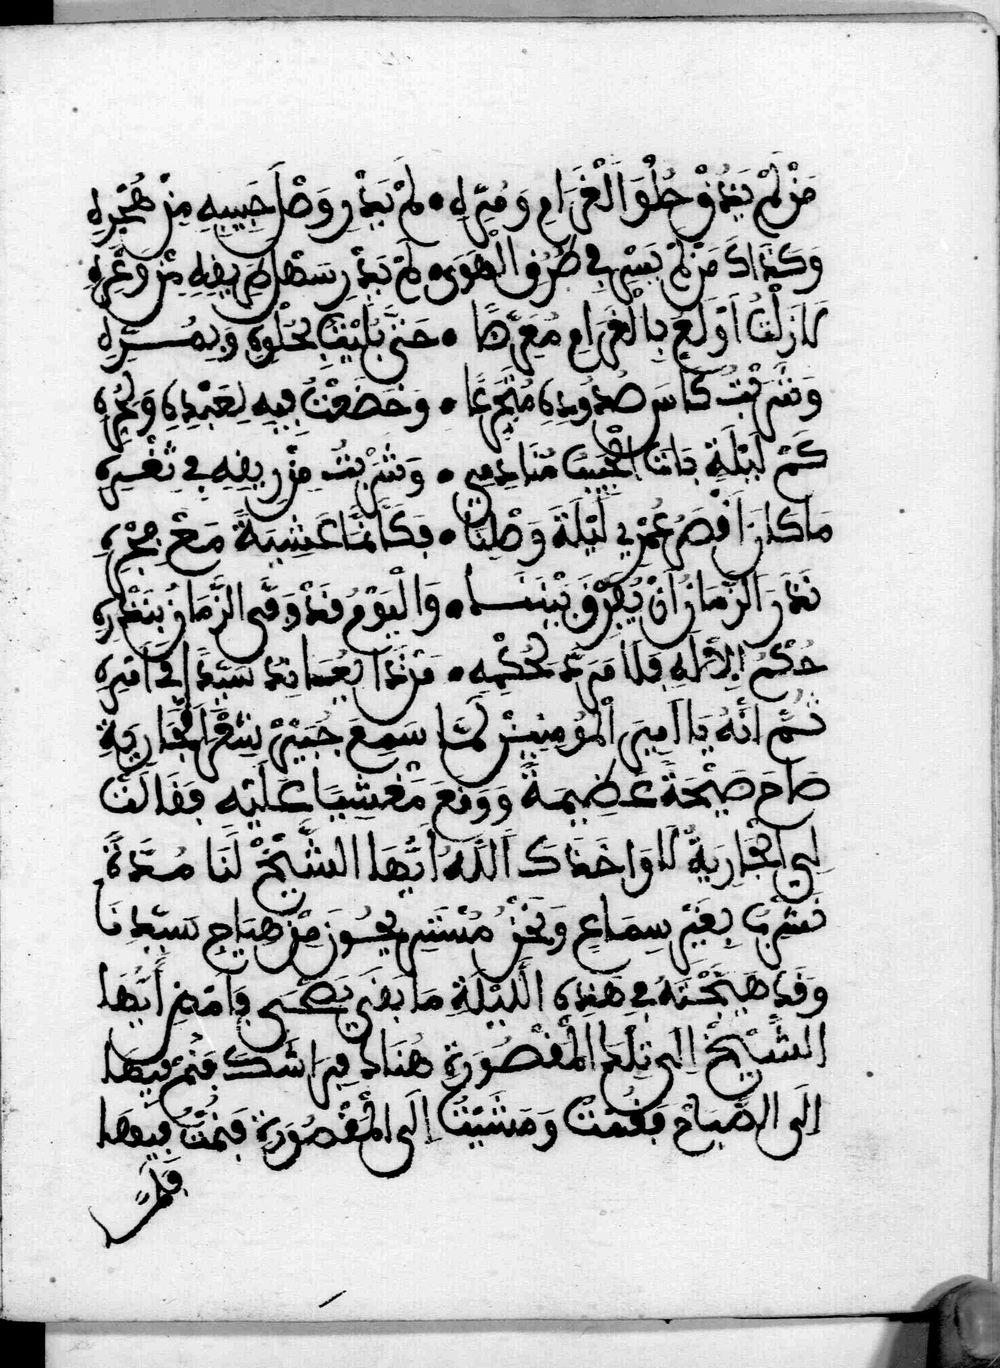 مَنْ لَمْ يَذُقْ حُلْوَ الْغَرَامِ وَمُرِّهِ • لَمْ يَدْرِ وَصْلَ حَبِيبِهِ مِنْ هَجْرِهِ
وَكَذَاكَ مَنْ لَمْ يَسْرِ فِي طُرُقِ الْهَوَى • لَمْ يَدْرِ سَهْلَ طَرِيقِهِ مِنْ وَعْرِهِ
لَازِلْتُ أَوْلَعُ بِالْغَرَامِ مُعَرَّضًا • حَتَّى بُلِيتُ بِحُلْوِهِ وَبِمُرِّهِ
وَشَرِبْتُ كَأْسَ صُدُودِهِ مُتَجَرِّعًا • وَخَضَعْتُ فِيهِ لِعَبْدِهِ وَلِحُرِّهِ
كَمْ لَيْلَةٍ بَاتَ الْحَبِيبُ مُنَادِمِي • وَشَرِبْتُ مِنْ رِيقِهِ فِي ثَغْرِهِ
مَا كَانَ أَقْصَرَ عُمْرِي لَيْلَةَ وَصْلِنَا • فَكَأَنَّمَا عَشِيَّةً مَعَ فَجْرِهِ
نَذَرَ الزَّمَانُ أَنْ يُفَرِّقَ بَيْنَنَا • وَالْيَوْمَ قَدْ وَفَّى الزَّمَانُ بِنَذْرِهِ
حُكْمُ الْإِلَهِ فَلَا مَرَدَّ لِحُكْمِهِ • مَنْ ذَا يُعَانِدُ سَيِّدًا فِي أَمْرِهِ
ثُمَّ أَنَّهُ يَا أَمِيرَ الْمُؤْمِنِينَ لَمَّا سَمِعَ جُبَيْرُ شِعْرَ الْجَارِيَةِ
صَاحَ صَيْحَةً عَضِيمَةً وَوَقَعَ مَغْشِيًا عَلَيْهِ فَقَالَتْ
لِي الْجَارِيَةُ لَا وَاخَذَكَ اللَّهُ أَيُّهَا الشَّيْخُ لَنَا مُدَّةً
نَشْرَبُ بِغَيْرِ سِمَاعٍ وَنَحْنُ مُسْتَرِيحُونَ مِنْ هِيَاجِ سَيِّدِنَا
وَقَدْ هَيَّجْتَهُ فِي هَذِهِ اللَّيْلَةِ مَا بَقِيَ يَصْحَى فَامْضِ أَيُّهَا
الشَّيْخُ إِلَى تِلْكَ الْمَقْصُورَةِ هُنَاكَ فِرَاشَكَ فَنَمْ فِيهَا
إِلَى الصَّبَاحِ فَقُمْتُ وَمَشَيْتُ إِلَى الْمَقْصُورَةِ فَنِمْتُ فِيهَا
فَلَمَّا